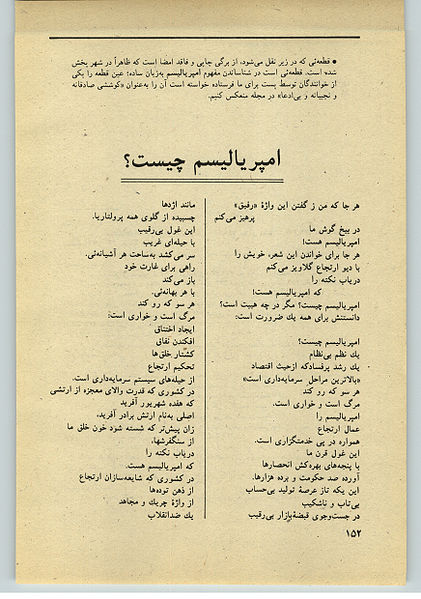 ● قطعه‌ئی که در زیر نقل می‌شود، از برگی چاپی و فاقد امضا است که ظاهراً در شهر پخش
شده است. قطعه‌ئی است در شناساندن مفهوم امپریالیسم به‌زبان ساده؛ عین قطعه را یکی
از خوانندگان توسط پست برای ما فرستاده خواسته است آن را به‌عنوان «کوششی صادقانه
و نجیبانه و بی‌ادعا» در مجله منعکس کنیم.
امپریالیسم چیست؟
هر جا که من ز گفتن این واژهٔ «رفیق»
پرهیز می‌کنم
در بیخ گوش ما
امپریالیسم هست!
هر جا برای خواندن این شعر، خویش را
با دیو ارتجاع گلاویز می‌کنم
دریاب نکته را
که امپریالیسم هست!
امپریالیسم چیست؟ مگر در چه هیبت است؟
دانستنش برای همه یك ضرورت است:
امپریالیسم چیست؟
یك نظم بی‌نظام
یك رشد پرفساد که ازحیث اقتصاد
«بالاترین مراحل سرمایه‌داری است»
هر سو که رو کند
مرگ است و خواری است.
امپریالیسم را
عمال ارتجاع
همواره در پی خدمتگزاری است.
این غول قرن ما
با پنجه‌های بهره‌کش انحصارها
آورده صد حکومت و برده هزارها.
این یکه تاز عرصهٔ تولید بی‌حساب
بی‌تاب و ناشکیب
در جست‌وجوی قبضهٔ بازار بی‌رقیب
مانند اژدها
چسبیده از گلوی همه پرولتاریا.
این غول بی‌رقیب
با حیله‌ای غریب
سر می‌کشد به‌ساحت هر آشیانه‌ئی.
راهی برای غارت خود
باز می‌کند
با هر بهانه‌ئی.
هر سو که رو کند
مرگ است و خواری است:
ایجاد اختناق
افکندن نفاق
کشتار خلق‌ها
تحکیم ارتجاع
از حیله‌های سیستم سرمایه‌داری است.
در کشوری که قدرت والای معجزه از ارتشی
که هفده شهریور آفرید
اصلی به‌نام ارتش برادر آفرید،
زان پیش‌تر که شسته شود خون خلق ما
از سنگفرشها،
دریاب نکته را
که امپریالیسم هست.
در کشوری که شایعه‌سازان ارتجاع
از ذهن توده‌ها
از واژهٔ چریك و مجاهد
یك ضدانقلاب
۱۵۲